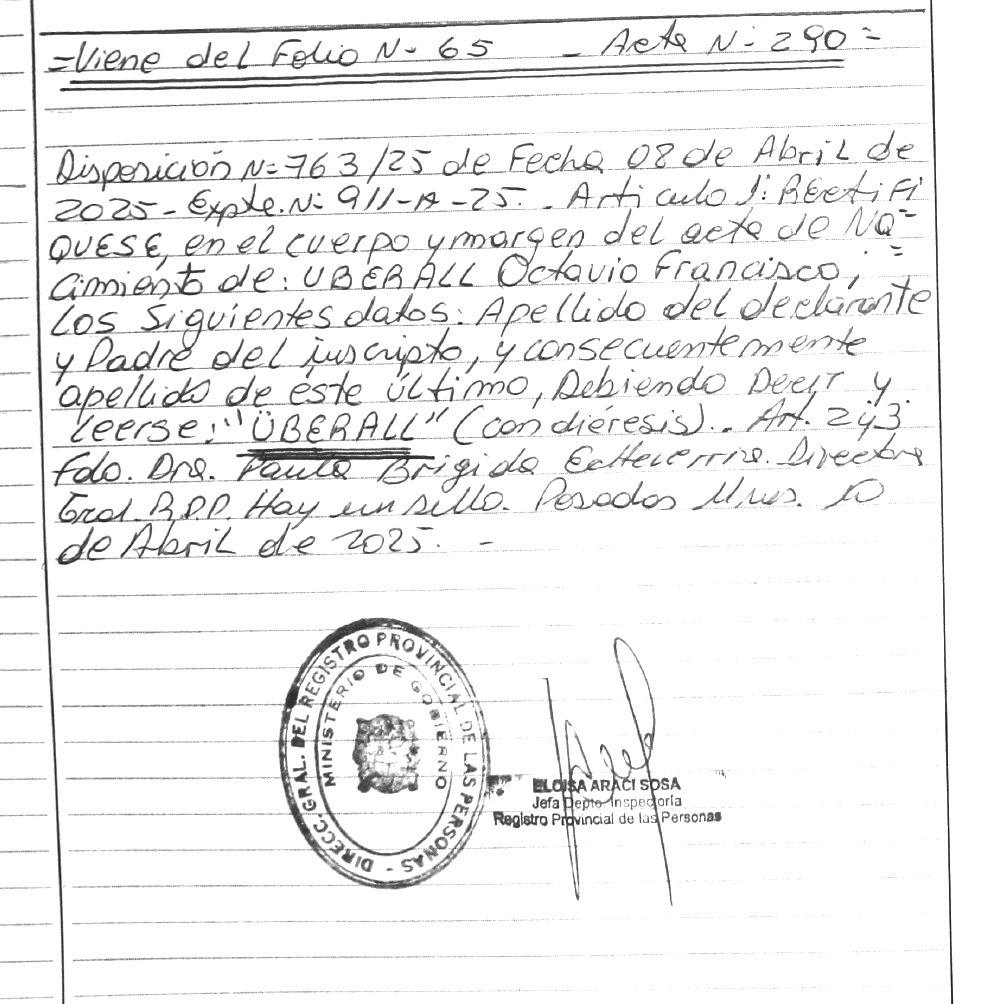 =Viene del Folio N- 65 - Acta N- 290=
Disposición N=763/25 de Fecha 08 de Abril de
2025- Expte. N: 911-A-25. - Articulo 1: RECtiFI
QUESE, en el cuerpo y margen del acta de NA=
cimiento de: UBERALL Octavio Francisco; =
Los siguientes datos: Apellido del declarante
y Padre del inscripto, y consecuentemente
apellido de éste último, Debiendo Decir y
Leerse: "ÜBERALL" (con diéresis). - Art. 2y3
Fdo. Dra. Paula Brigida Echeverria. Directora
Gral. R.P.P. Hay un sello. Posadas Mnes. 10
de Abril de 2025. -
DIRECC. GRAL. DEL REGISTRO PROVINCIAL DE LAS PERSONAS -
MINISTERIO DE GOBIERNO
ELOISA ARACI SOSA
Jefa Depto. Inspectoría
Registro Provincial de las Personas